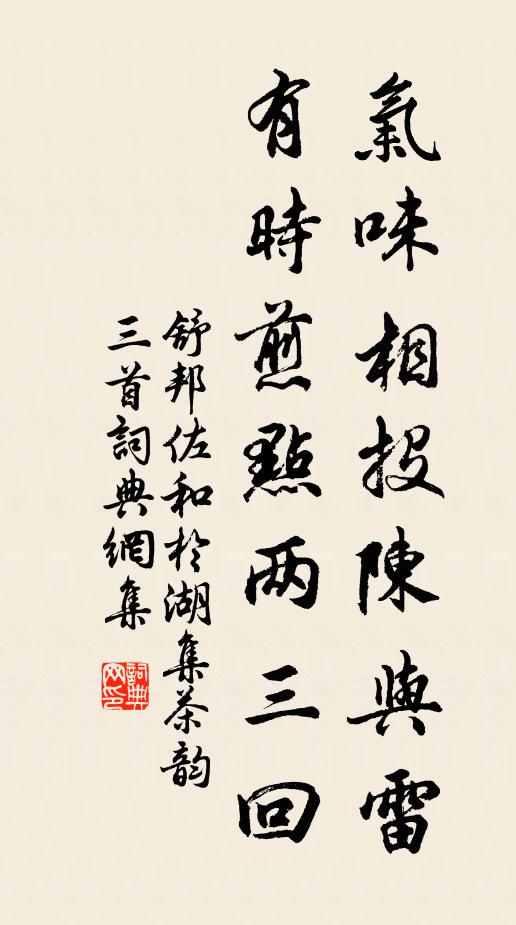 氣味相投陳與雷
有時煎點两三回
舒邦佐和於湖集茶韵
三首詞典網集
詞典网印